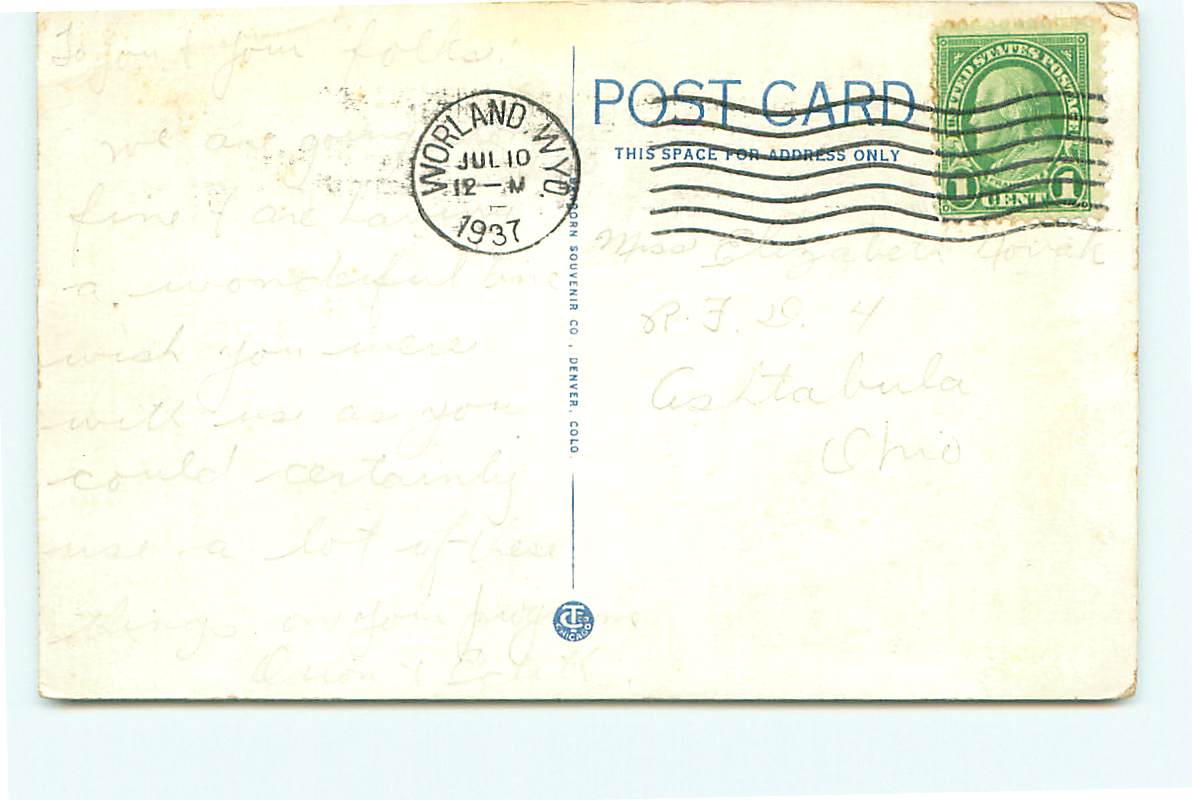 To you & your folks.
we are going
fine & are having
a wonderful time
wish you were
with us as you
could certainly
use a lot of these
things on your programs
WORLAND, WYO.
JUL 10
12 — M
1937
SANBORN SOUVENIR CO., DENVER, COLO.
CHICAGO
POST CARD
THIS SPACE FOR ADDRESS ONLY
UNITED STATES POSTAGE
FRANKLIN
1 CENT 1
Miss Elizabeth Novak
R. F. D. 4
Ashtabula
Ohio